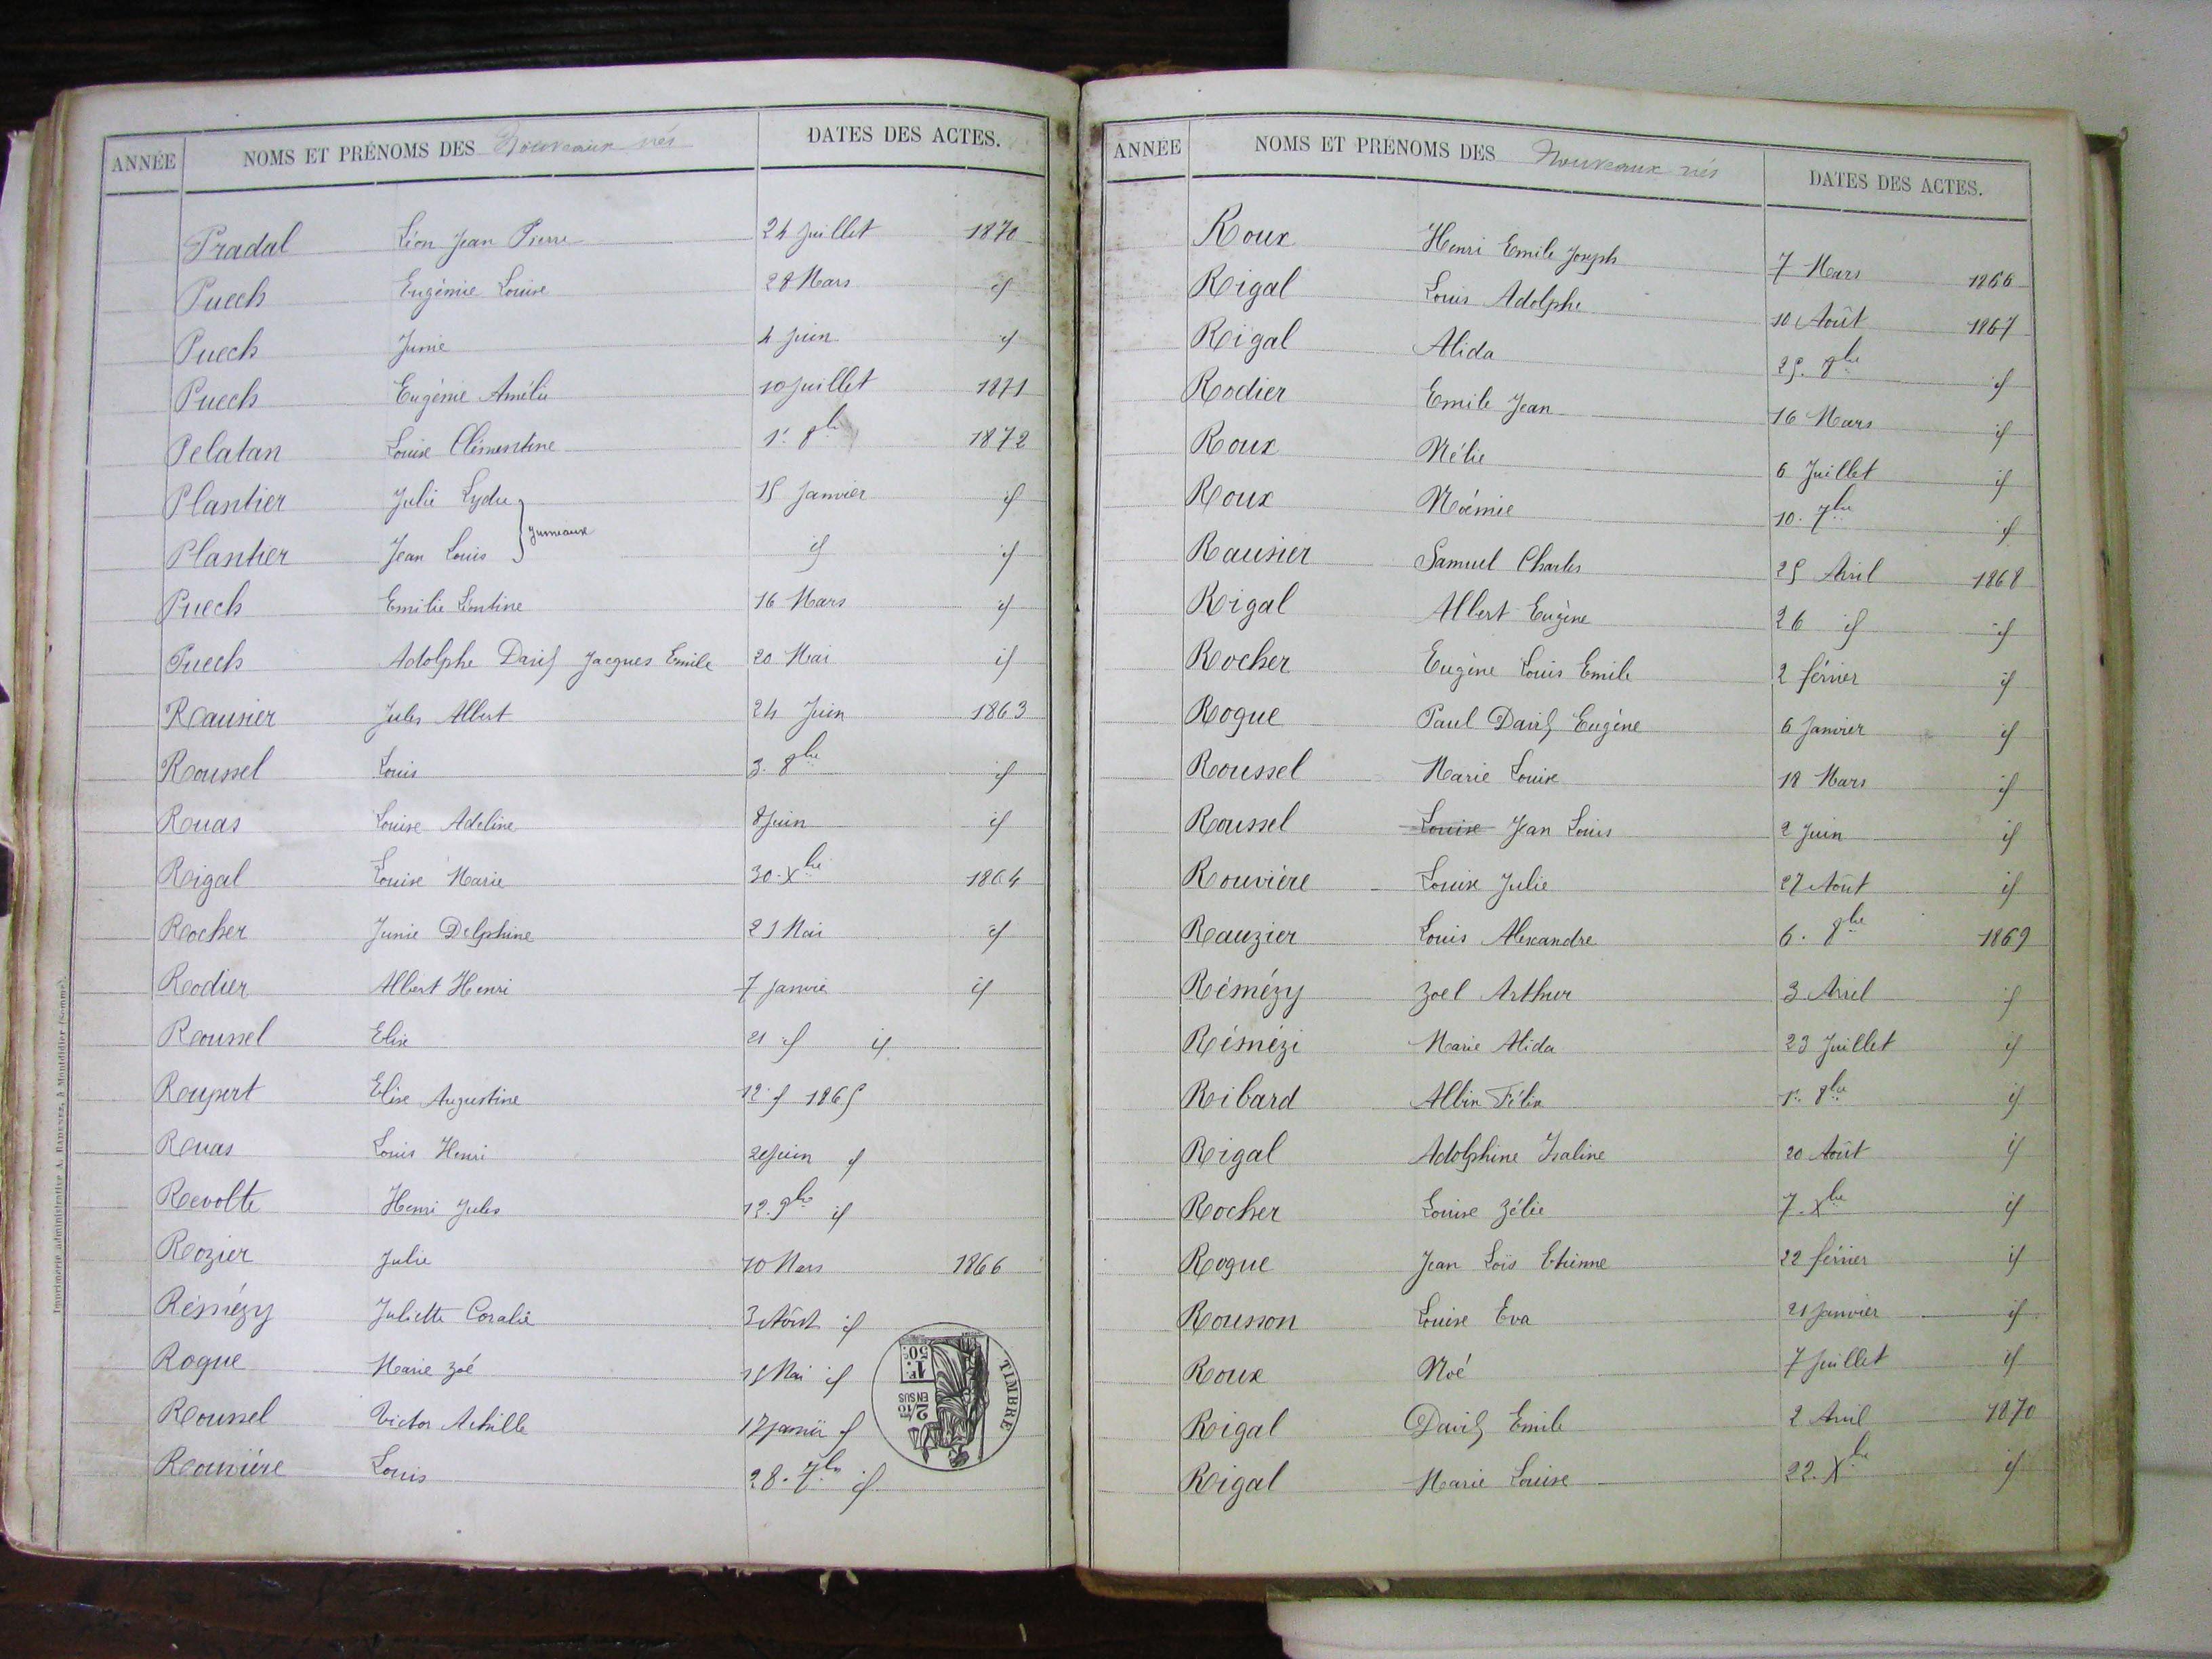 ANNÉE NOMS ET PRÉNOMS DES Nouveaux nés DATES DES ACTES.
Pradal Léon Jean Pierre 24 Juillet 1870
Puech Eugénie Louise 28 Mars id
Puech Junie 4 Juin id
Puech Eugénie Amélie 10 Juillet 1871
Pelatan Louise Clémentine 1er 8bre 1872
Plantier Julie Lydie 15 Janvier id
Jumeaux
Plantier Jean Louis id id
Puech Emilie Léontine 16 Mars id
Puech Adolphe David Jacques Emile 20 Mai id
Rausier Jules Albert 24 Juin 1863
Roussel Louis 3. 8bre id
Rouas Louise Adeline 8 Juin id
Rigal Louise Marie 30. Xbre 1864
Rocher Junie Delphine 21 Mai id
Rodier Albert Henri 7 Janvier id
Roussel Elise 21 id id
Rupert Elise Augustine 12 id 1865
Rouas Louis Henri Juin id
Revolte Henri Jules 12. 9bre id
Rozier Julie 10 Mars 1866
Rémézy Juliette Coralie 3 Août id
Roque Marie Zoé 15 Mai id
Roussel Victor Achille 17 Janvier id
Rouvière Louis 28. 7bre id
TIMBRE
1F. 50C.
2/10 EN SUS
Imprimerie administrative A. RADENEZ, à Montdidier (Somme).
ANNÉE NOMS ET PRÉNOMS DES Nouveaux nés DATES DES ACTES.
Roux Henri Emile Joseph 7 Mars 1866
Rigal Louis Adolphe 10 Août 1867
Rigal Alida 25. 8bre id
Rodier Emile Jean 16 Mars id
Roux Mélie 6 Juillet id
Roux Noémie 10. 7bre id
Rausier Samuel Charles 25 Avril 1868
Rigal Albert Eugène 26 id id
Rocher Eugène Louis Emile 2 février id
Roque Paul David Eugène 6 Janvier id
Roussel Marie Louise 18 Mars id
Roussel Louise Jean Louis 2 Juin id
Rouvière Louise Julie 27 Août id
Rauzier Louis Alexandre 6. 8bre 1869
Rémézy Zoel Arthur 3 Avril id
Rémézi Marie Alida 23 Juillet id
Ribard Albin Félix 1er 8bre id
Rigal Adolphine Isaline 20 Août id
Rocher Louise Zélie 7. Xbre id
Roque Jean Loïs Etienne 22 février id
Rousson Louise Eva 21 Janvier id
Roux Noé 7 Juillet id
Rigal David Emile 2 Avril 1870
Rigal Marie Louise 22. Xbre id